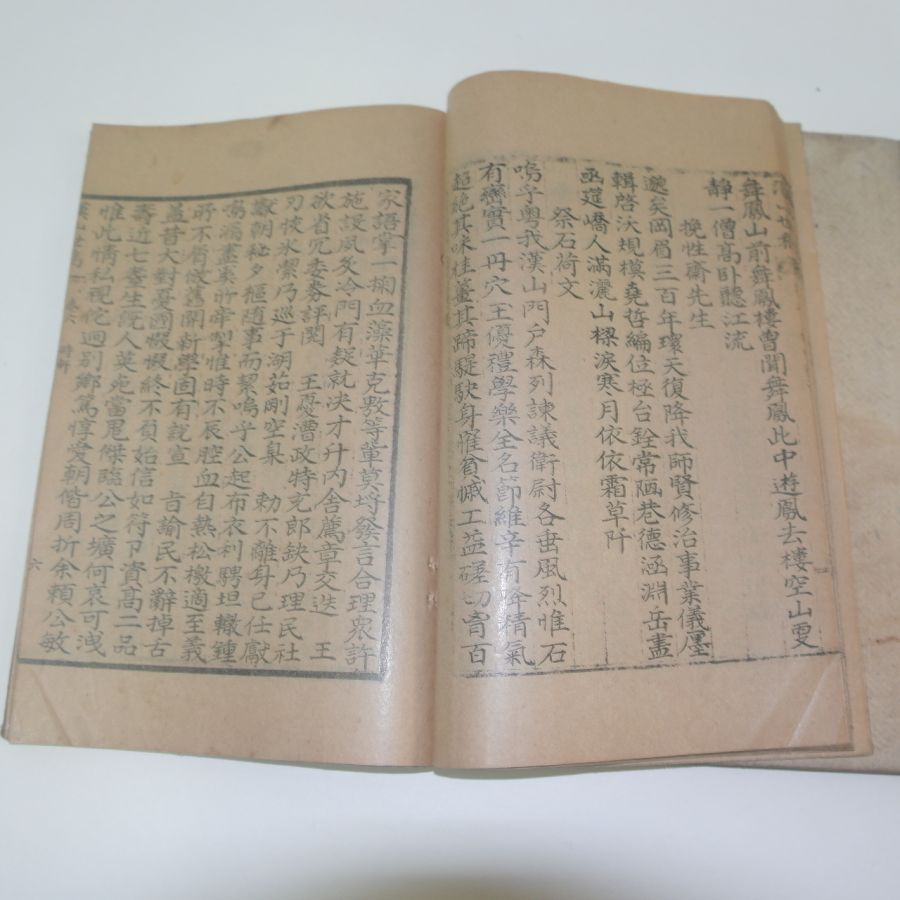 舞鳳山前舞鳳樓曾聞舞鳳此中遊鳳去樓空山更
靜一僧高臥聽江流
挽性齋先生
邈矣岡眉三百年環天復降我師賢修治事業儀厘
輯啓沃規模堯哲編位極台銓常陋巷德涵淵岳盡
函筵嶠人滿灑山樑淚寒月依依霜草阡
祭石荷文
嗚乎粤我漢山門戶森列諫議衛尉各垂風烈惟石
有齊實一丹穴王優禮學樂全名節維辛有降精氣
超絶其味桂薑其蹄騠駃身罹貧慽工益磋切育百
家語掌一掬血藻華克敷等輩莫埒發言合理衆許
施設風灸冷門有疑就决才升内舍薦章交迭 王
欲省冗委券評閱 王憂漕政特充郎缺乃理民社
刃恢氷潔乃巡于湖茹剛空臬 勅不離身已任獻
猷朝秘夕樞随事而絜嗚乎公起布衣利騁坦轍鍾
鳴漏盡奚所牽掣惟時不辰腔血自熱松檄適至義
所不屑倣舊開新學固有說宣 旨諭民不辭掉舌
益昔大對憂國惙惙終不負始信如符卩資高二品
壽近七耋生旣人英死當鬼傑臨公之壙何哀可洩
惟此情私視佗迥别鄕篤惇愛朝偕周折余頼公敏
六